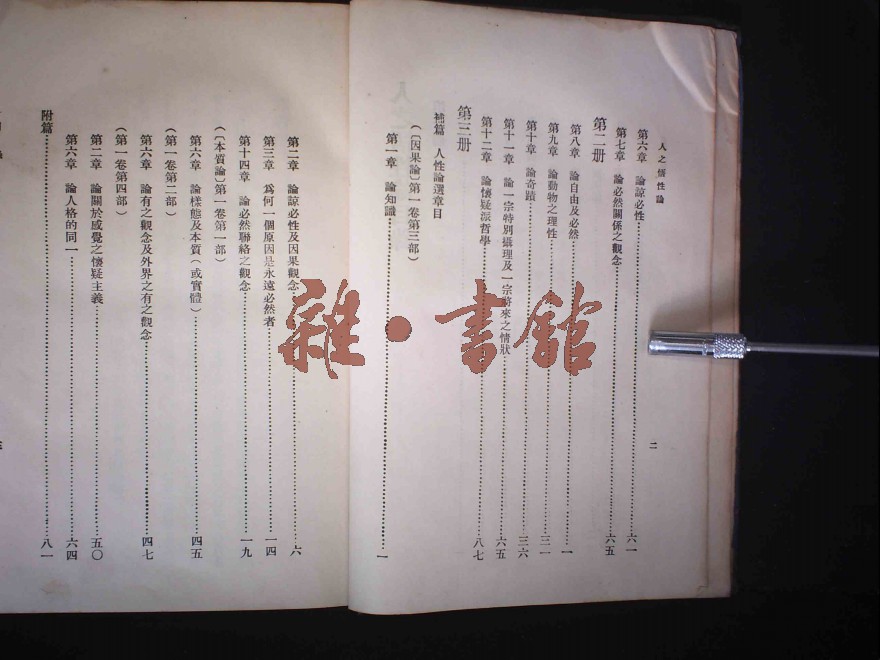 人之悟性論
二
第六章 論諒必性 六一
第七章 論必然關係之觀念 六五
第二册
第八章 論自由及必然 一
第九章 論動物之理性 三一
第十章 論奇蹟 三六
第十一章 論一宗特別攝理及一宗將來之情狀 六五
第十二章 論懷疑派哲學 八七
第三册
補篇 人性論選章目
(〔因果論〕第一卷第三部)
第一章 論知識 一
第二章 論諒必性及因果觀念 六
第三章 爲何一個原因是永遠必然者 一四
第十四章 論必然聯絡之觀念 一九
(〔本質論〕第一卷第一部)
第六章 論樣態及本質(或實體) 四五
(第一卷第二部)
第六章 論有之觀念及外界之有之觀念 四七
(第一卷第四部)
第二章 論關於感覺之懷疑主義 五〇
第六章 論人格的同一 六四
附篇 八一
雜·書館